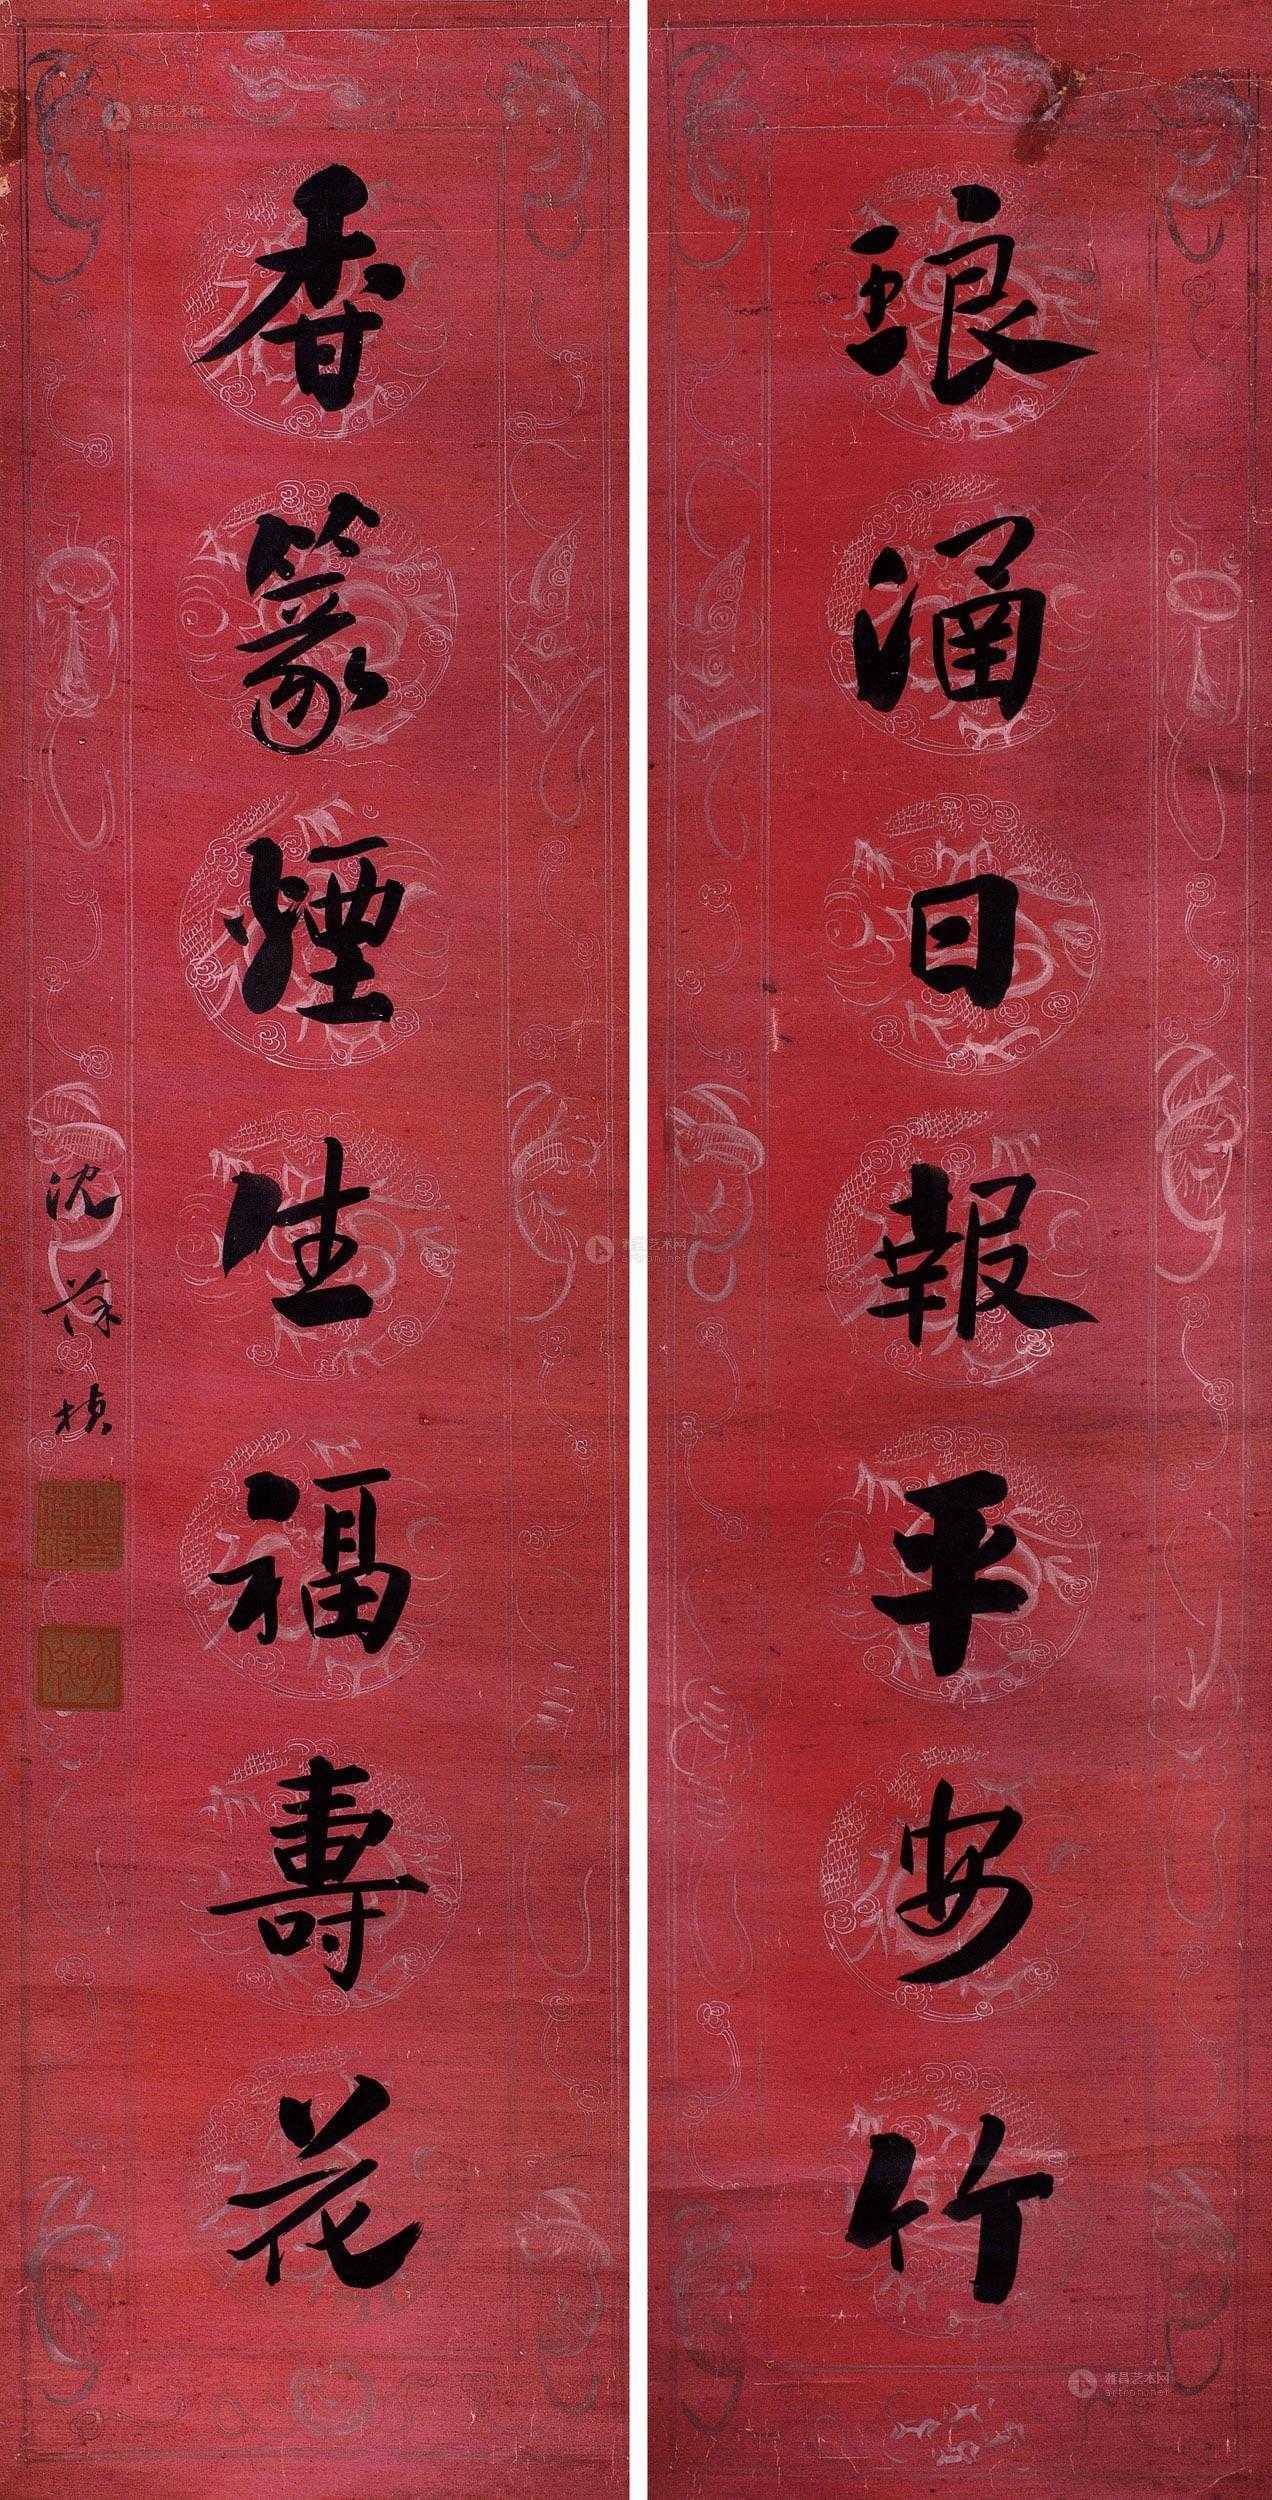 琅涵日報平安竹
香篆煙生福壽花
沈葆楨
雅昌艺术网
artron.net
雅昌艺术网
artron.net
雅昌艺术网
artron.net